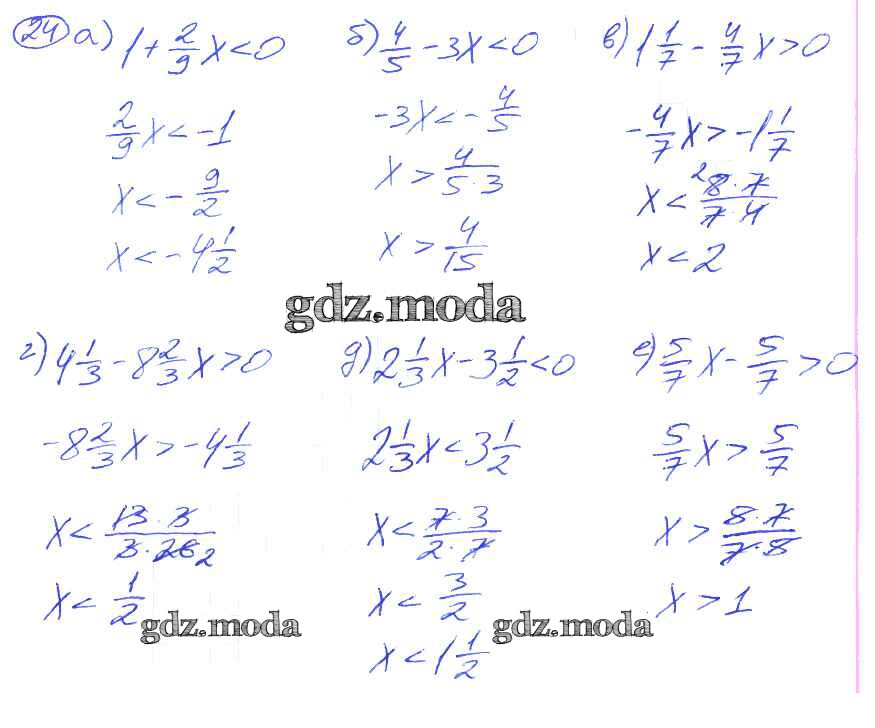 24 а) 1 + 2/9 x < 0
2/9 x < -1
x < - 9/2
x < -4 1/2
б) 4/5 - 3x < 0
-3x < - 4/5
x > 4/(5·3)
x > 4/15
в) 1 1/7 - 4/7 x > 0
- 4/7 x > -1 1/7
x < 2 8·7/(7·4)
x < 2
gdz.moda
г) 4 1/3 - 8 2/3 x > 0
-8 2/3 x > -4 1/3
x < 13·3/(3·26) 2
x < 1/2
gdz.moda
д) 2 1/3 x - 3 1/2 < 0
2 1/3 x < 3 1/2
x < 7·3/(2·7)
x < 3/2
x < 1 1/2
gdz.moda
е) 5/7 x - 5/7 > 0
5/7 x > 5/7
x > 8·7/(7·8)
x > 1